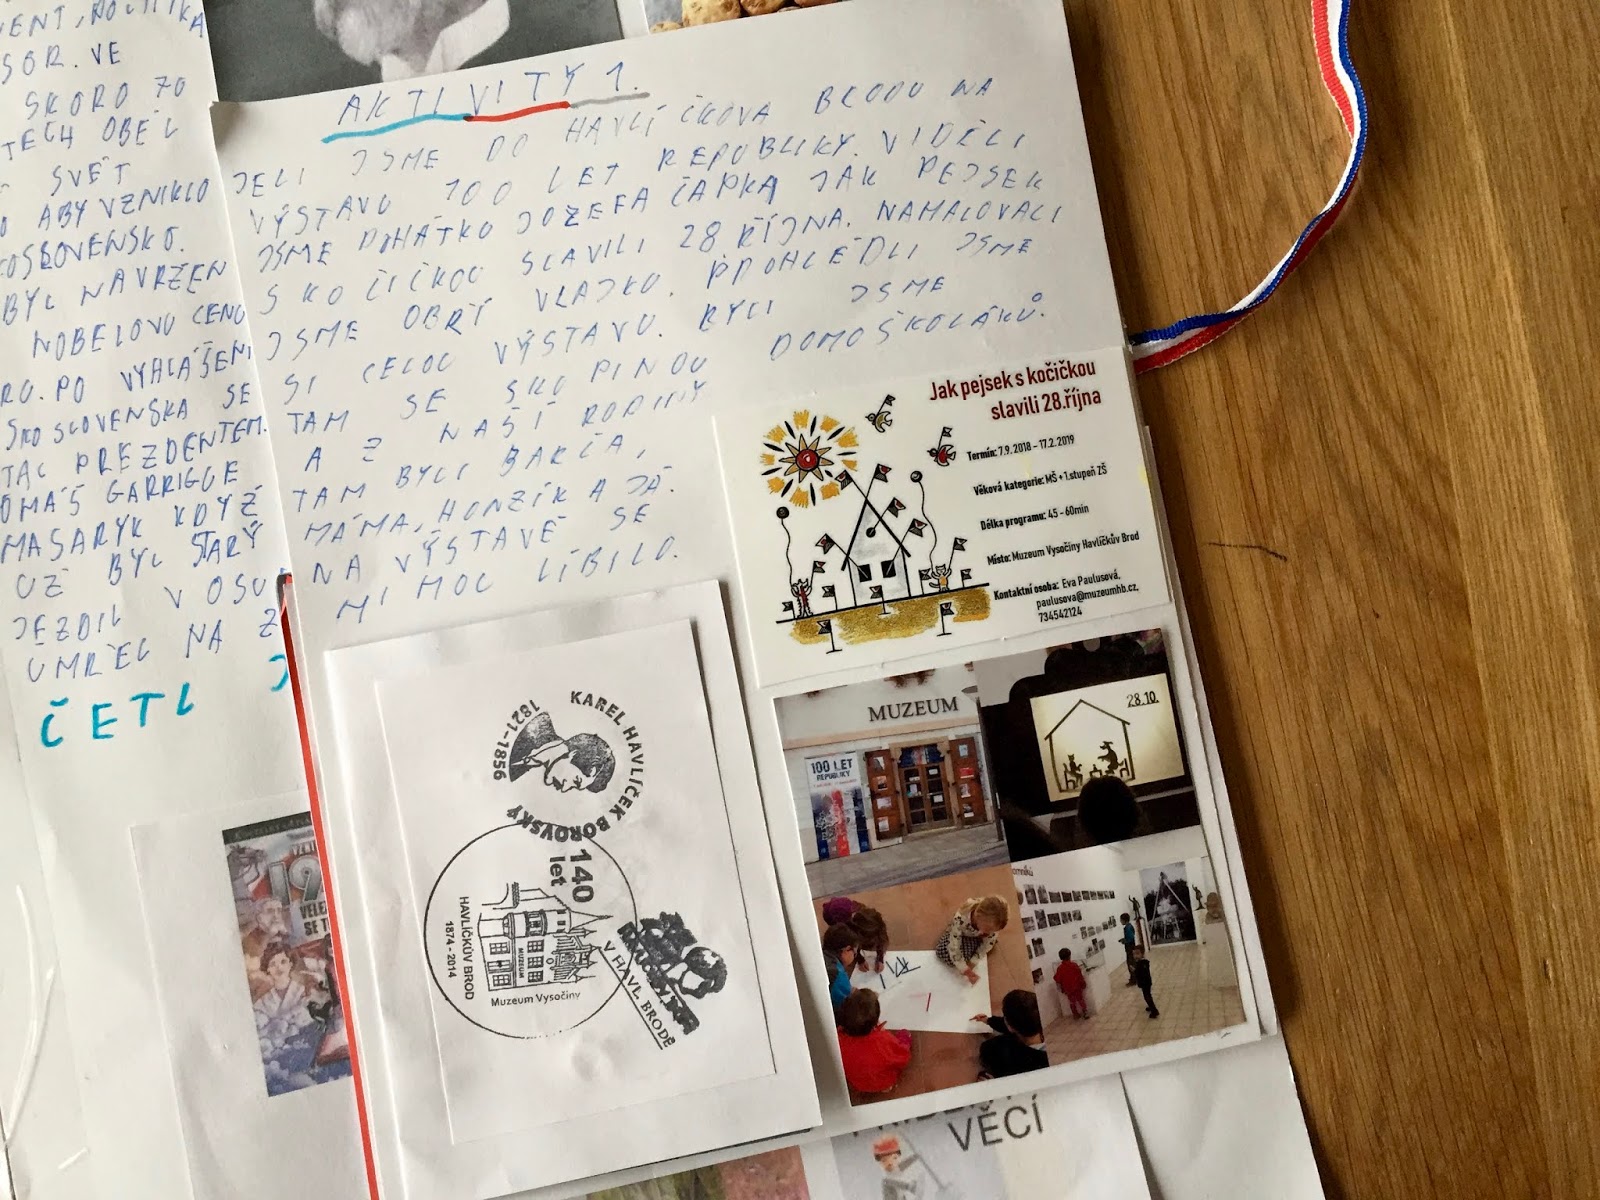 SOR. VE
SKORO 70
TECH OBĚL
SVĚT
ABY VZNIKLO
BYL NAVRŽEN
NOBELOVU CENU
PO VYHLÁŠENÍ
SKOSLOVENSKA SE
STAL PREZDENTEM.
TOMÁŠ GARRIGUE
MASARYK KDYŽ
UŽ BYL STARÝ
JEZDIL V
UMŘEL NA
ČETL
AKTIVITY 1.
JELI JSME DO HAVLÍČKOVA BRODU NA
VÝSTAVU 100 LET REPUBLIKY. VIDĚLI
JSME POHÁTKO JOZEFA ČAPKA JAK PEJSEK
S KOČIČKOU SLAVILI 28 ŘÍJNA. NAMALOVALI
JSME OBRÝ VLAJKU. PROHLÉDLI JSME
SI CELOU VÝSTAVU. BYLI JSME
TAM SE SKUPINOU DOMOŠKOLÁKŮ.
A Z NAŠÍ RODINY
TAM BYLI BARČA,
MÁMA, HONZÍK A JÁ.
NA VÝSTAVĚ SE
MI MOC LÍBILO.
Jak pejsek s kočičkou
slavili 28.října
Termín: 7.9.2018 - 17.2.2019
Věková kategorie: MŠ + 1.stupeň ZŠ
Délka programu: 45 - 60min
Místo: Muzeum Vysočiny Havlíčkův Brod
Kontaktní osoba: Eva Paulusová,
paulusova@muzeumhb.cz,
734542124
KAREL HAVLÍČEK BOROVSKÝ
1821-1856
140
let
MUZEUM
Muzeum Vysočiny
HAVLÍČKŮV BROD
1874 - 2014
V HAVL. BRODĚ
MUZEUM
100 LET
REPUBLIKY
28.10.
VĚCÍ